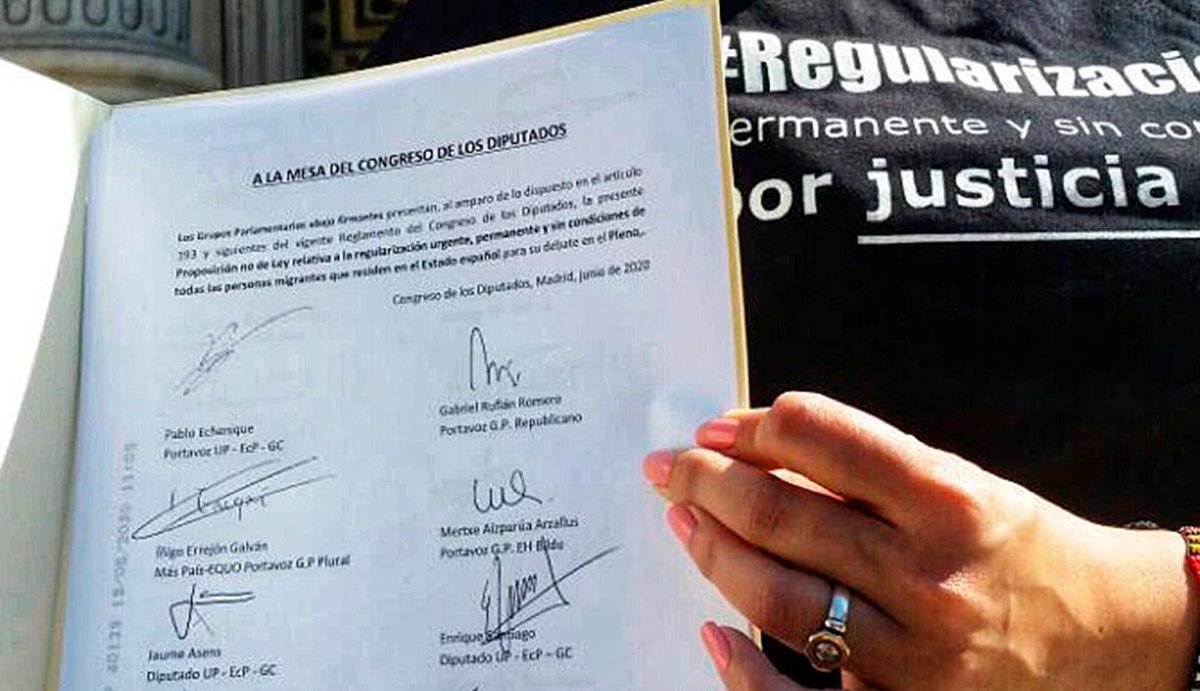 A LA MESA DEL CONGRESO DE LOS DIPUTADOS
Los Grupos Parlamentarios abajo firmantes presentan, al amparo de lo dispuesto en el artículo
193 y siguientes del vigente Reglamento del Congreso de los Diputados, la presente
Proposición no de Ley relativa a la regularización urgente, permanente y sin condiciones de
todas las personas migrantes que residen en el Estado español para su debate en el Pleno.-
Congreso de los Diputados, Madrid, junio de 2020
Pablo Echenique
Portavoz UP - EcP - GC
Gabriel Rufián Romero
Portavoz G.P. Republicano
Íñigo Errejón Galván
Más País-EQUO Portavoz G.P Plural
Mertxe Aizpurúa Arzallus
Portavoz G.P. EH Bildu
Jaume Asens
Diputado UP - EcP - GC
Enrique Santiago
Diputado UP - EcP - GC
#Regularizació
ermanente y sin co
por justicia